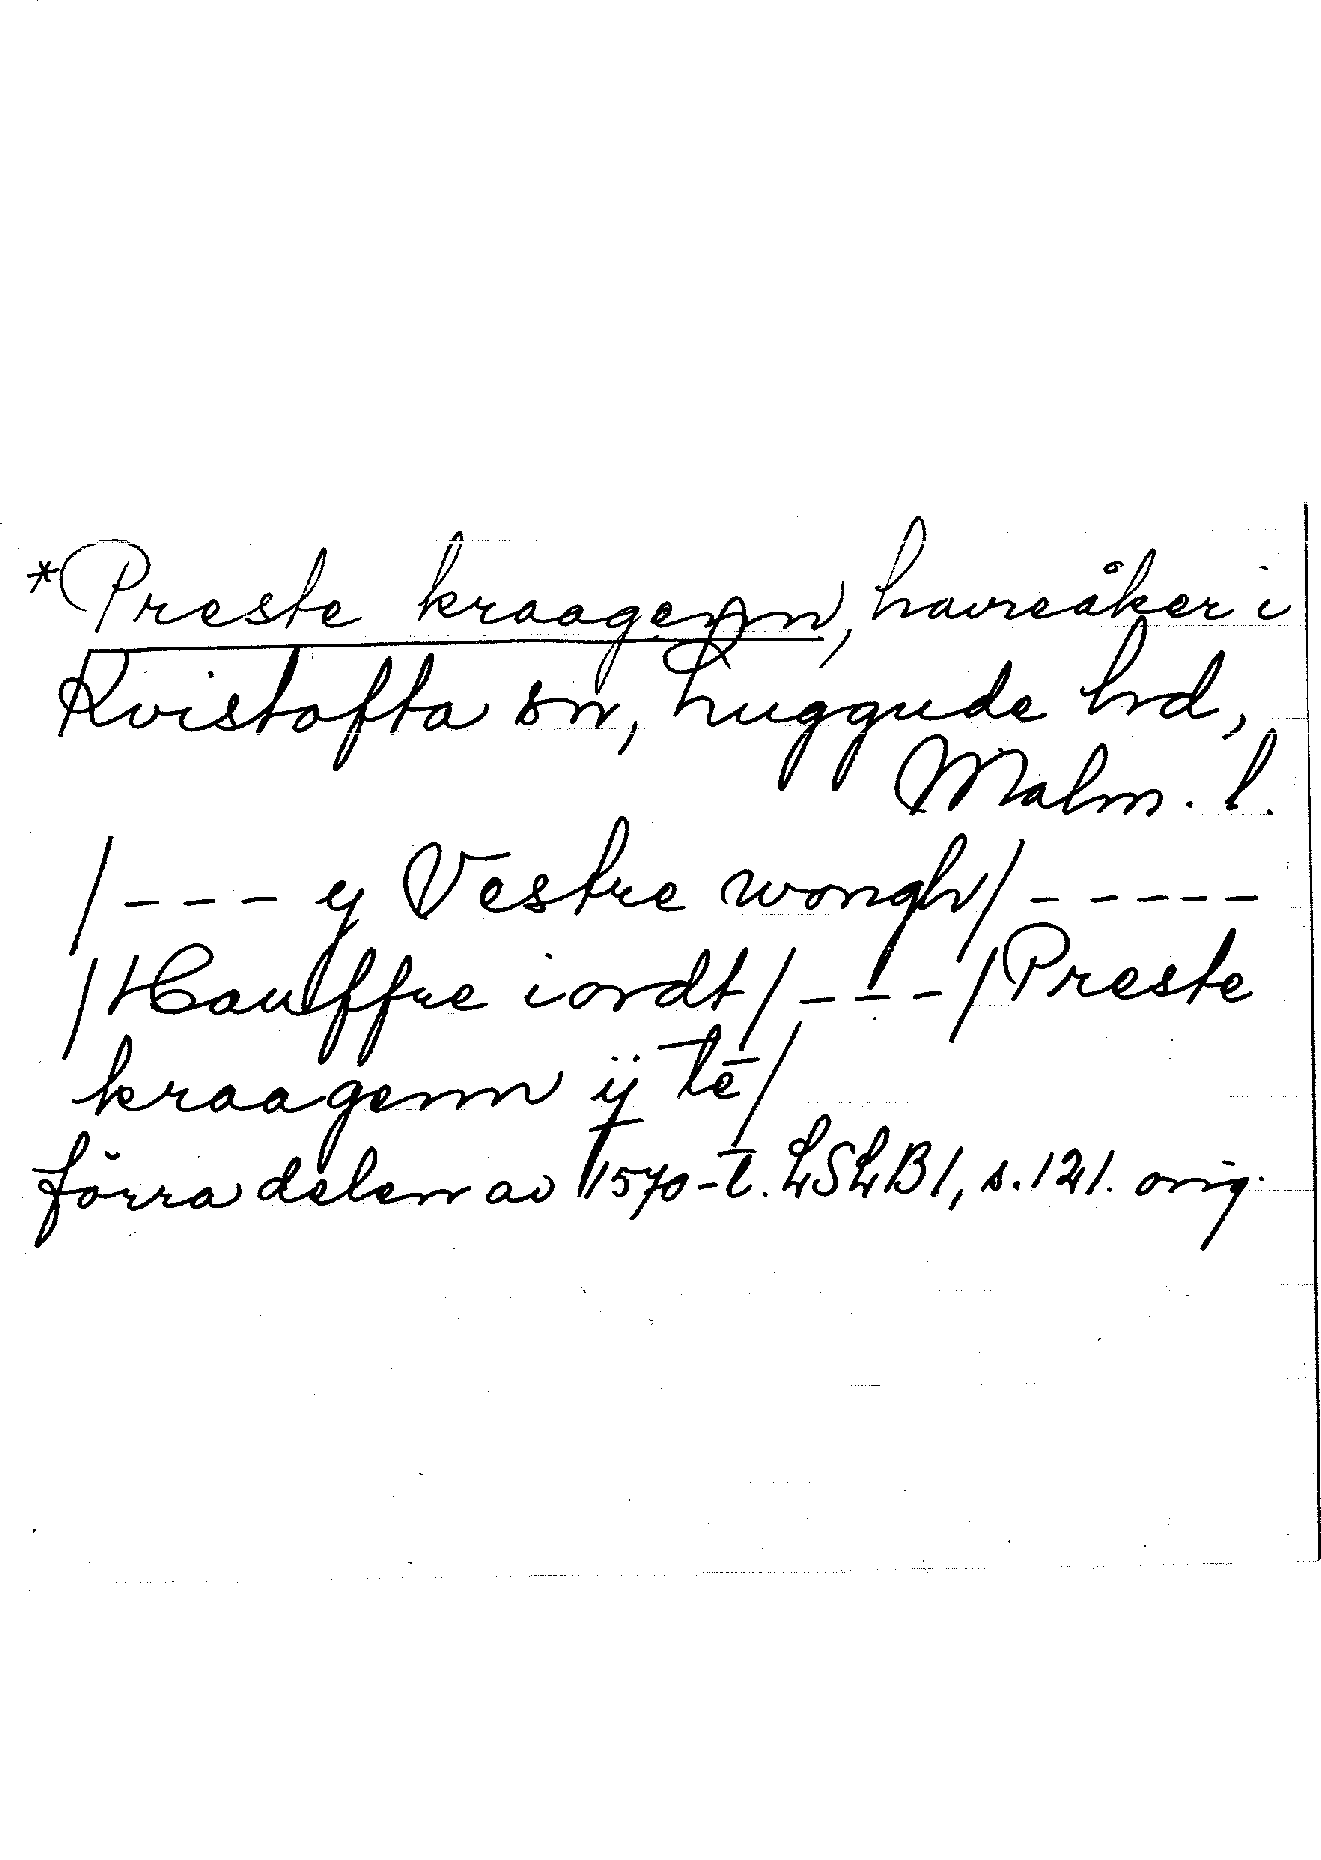 *Preste kraagenn, havreåker i
Kvistofta sn, Luggude hrd,
Malm. l.
/--- y Vestre wongh/-----
/Hauffre iordt/---/Preste
kraagenn ij tē/
förra delen av 1570-t. LSLB1, s.121. orig.